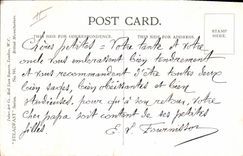 POST CARD.
THIS SPACE FOR WRITING. THE ADDRESS ONLY HERE.
Chères petites = Votre tante et votre
oncle vous embrassent bien tendrement
et vous recommandent d'être toutes deux
bien sages, bien obéissantes et bien
studieuses, pour qu'à son retour, votre
cher papa soit content de ses petites
filles
E. V.